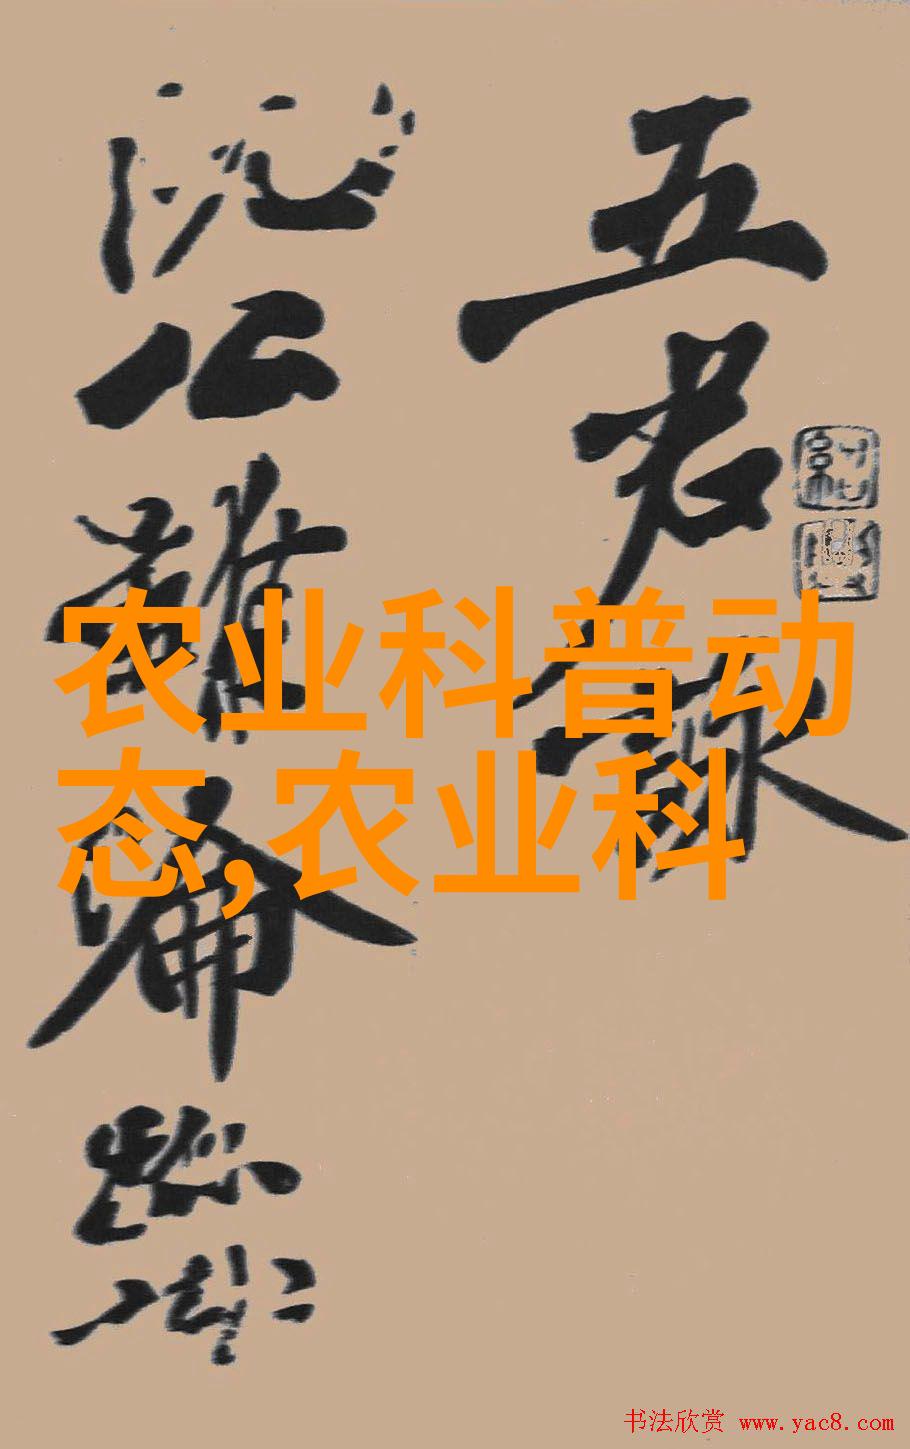 五君詠
阮公雖淪跡
农业科普动
态,农业科
书法欣赏 www.yac8.com